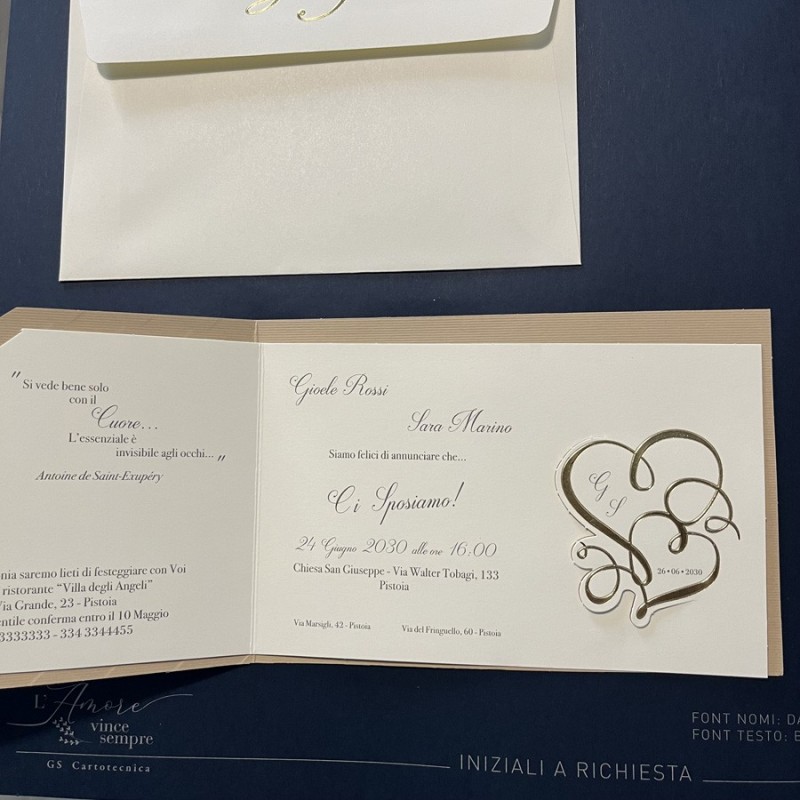 "
Si vede bene solo
con il
Cuore...
L'essenziale è
invisibile agli occhi... "
Antoine de Saint-Exupéry
saremo lieti di festeggiare con Voi
ristorante "Villa degli Angeli"
Via Grande, 23 - Pistoia
conferma entro il 10 Maggio
3333333 - 334 3344455
Gioele Rossi
Sara Marino
Siamo felici di annunciare che...
Ci Sposiamo!
24 Giugno 2030 alle ore 16:00
Chiesa San Giuseppe - Via Walter Tobagi, 133
Pistoia
Via Marsigli, 42 - Pistoia
Via del Fringuello, 60 - Pistoia
G
S
26•06•2030
L'Amore
vince
sempre
GS Cartotecnica
FONT NOMI:
FONT TESTO:
INIZIALI A RICHIESTA